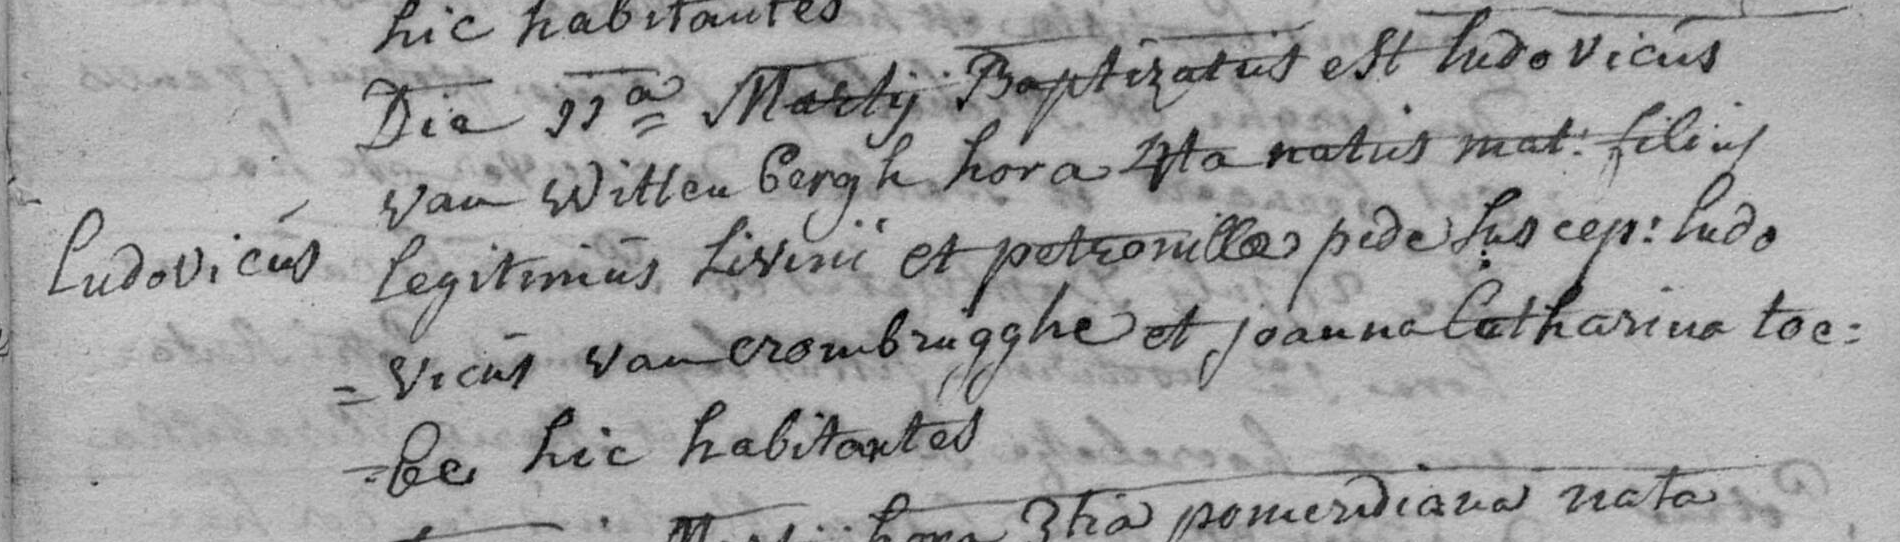 hic habitantes
Die 11a Martij Baptizatus est Ludovicus
van Wittenbergh hora 4ta natus mat: filius
Ludovicus legitimus Livinii et petronilla pide Suscep: Ludo
=vicus van crombrugghe et joanna Catharina toe=
=be hic habitantes
Martii hora 3tia pomeridiana nata